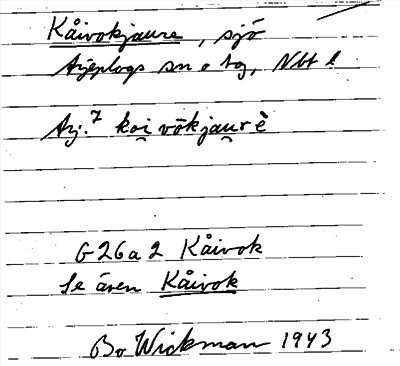 Kåivokjaure, sjö
Arjeplogs sn o tg, Nbt l
Arj.7 koi̯vōkjau̯rè
G 26 a 2 Kåivok
Se även Kåivok
Bo Wickman 1943